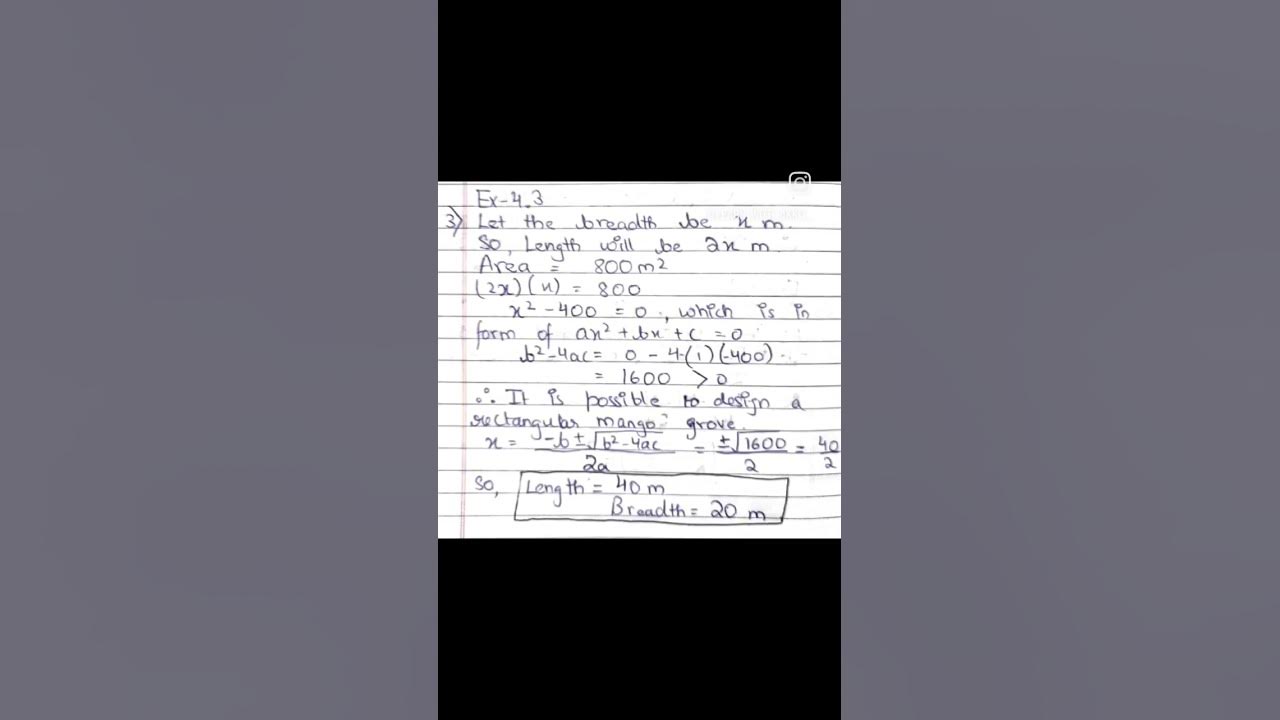 Ex-4.3
3) Let the breadth be x m.
So, Length will be 2x m
Area = 800 m²
(2x)(x) = 800
x² - 400 = 0, which is in
form of ax² + bx + c = 0
b² - 4ac = 0 - 4·(1)(-400)
= 1600 > 0
∴ It is possible to design a
rectangular mango grove.
x = -b ± √b² - 4ac / 2a = ± √1600 / 2 = 40 / 2
So, Length = 40 m
Breadth = 20 m